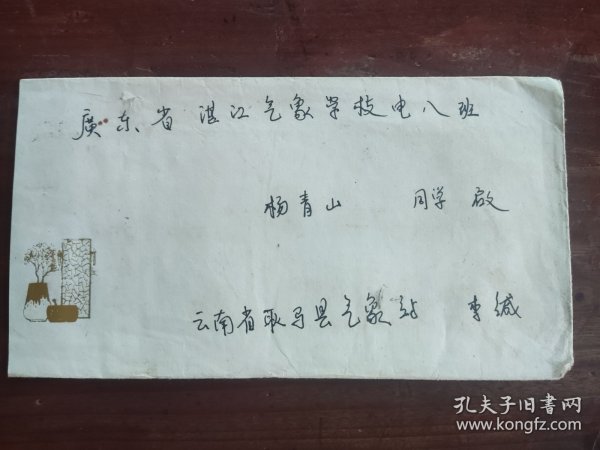 廣东省 湛江气象学校电八班
杨青山 同学 啟
云南省耿马县气象站 李缄
孔夫子旧書网
www.kongfz.com